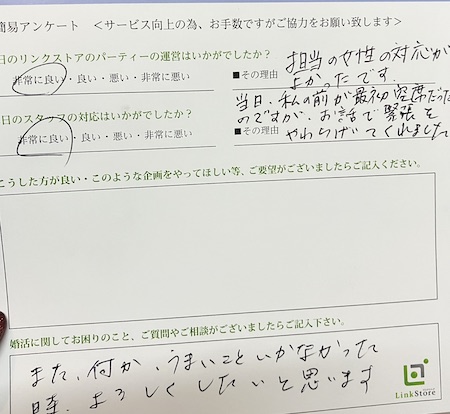 簡易アンケート ＜サービス向上の為、お手数ですがご協力をお願い致します＞
日のリンクストアのパーティーの運営はいかがでしたか？
非常に良い・良い・悪い・非常に悪い
■その理由
担当の女性の対応が
よかったです.
日のスタッフの対応はいかがでしたか？
非常に良い・良い・悪い・非常に悪い
■その理由
当日、私の前が最初空席だった
のですが、お話で緊張を
やわらげてくれました
こうした方が良い・このような企画をやってほしい等、ご要望がございましたらご記入ください。
婚活に関してお困りのこと、ご質問やご相談がございましたらご記入下さい。
また、何か、うまいこといかなかった
時、よろしくしたいと思います
LinkStore